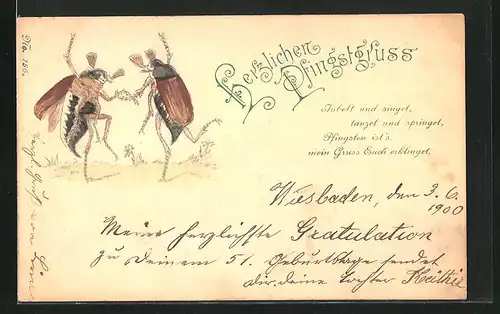 No. 156.
Herzlichen
Pfingstgruss
Jubelt und singet,
tanzet und springet,
Pfingsten ist's,
mein Gruss Euch erklinget.
Wiesbaden, den 3.6.
1900
Meine herzlichste Gratulation
zu Deinem 51. Geburtstage sendet
dir deine Tochter Käthie